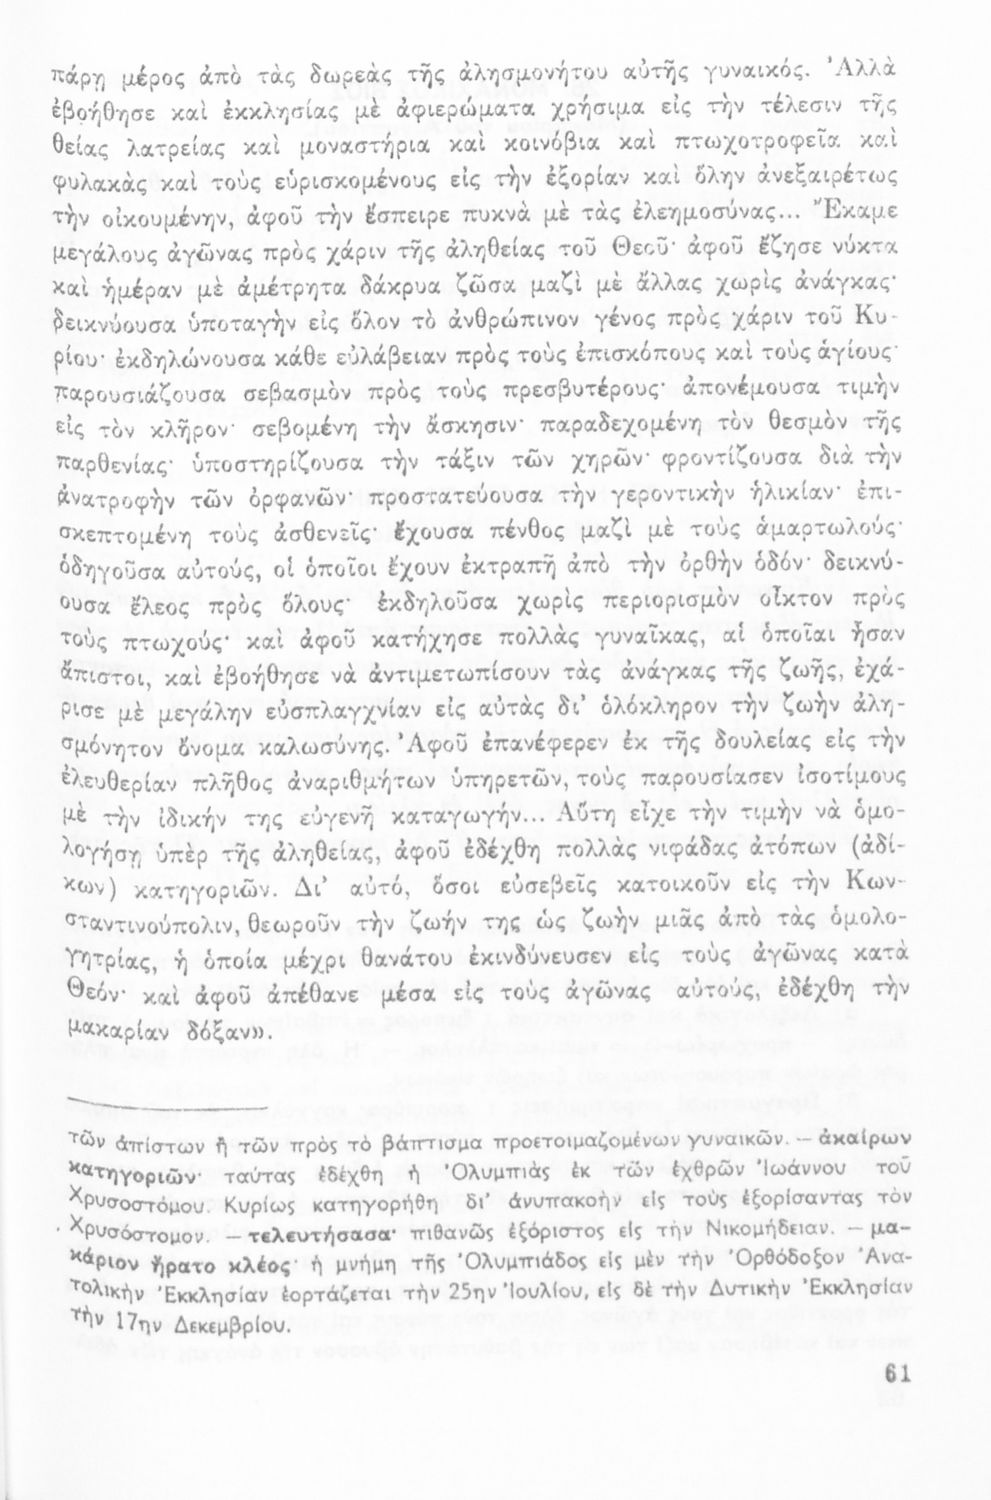 πάρῃ μέρος ἀπὸ τὰς δωρεὰς τῆς ἀλησμονήτου αὐτῆς γυναικός. Ἀλλὰ
ἐβοήθησε καὶ ἐκκλησίας μὲ ἀφιερώματα χρήσιμα εἰς τὴν τέλεσιν τῆς
θείας λατρείας καὶ μοναστήρια καὶ κοινόβια καὶ πτωχοτροφεῖα καὶ
φυλακὰς καὶ τοὺς εὑρισκομένους εἰς τὴν ἐξορίαν καὶ ὅλην ἀνεξαιρέτως
τὴν οἰκουμένην, ἀφοῦ τὴν ἔσπειρε πυκνὰ μὲ τὰς ἐλεημοσύνας... Ἔκαμε
μεγάλους ἀγῶνας πρὸς χάριν τῆς ἀληθείας τοῦ Θεοῦ· ἀφοῦ ἔζησε νύκτα
καὶ ἡμέραν μὲ ἀμέτρητα δάκρυα ζῶσα μαζὶ μὲ ἄλλας χωρὶς ἀνάγκας·
δεικνύουσα ὑποταγὴν εἰς ὅλον τὸ ἀνθρώπινον γένος πρὸς χάριν τοῦ Κυ-
ρίου· ἐκδηλώνουσα κάθε εὐλάβειαν πρὸς τοὺς ἐπισκόπους καὶ τοὺς ἁγίους·
παρουσιάζουσα σεβασμὸν πρὸς τοὺς πρεσβυτέρους· ἀπονέμουσα τιμὴν
εἰς τὸν κλῆρον· σεβομένη τὴν ἄσκησιν· παραδεχομένη τὸν θεσμὸν τῆς
παρθενίας· ὑποστηρίζουσα τὴν τάξιν τῶν χηρῶν· φροντίζουσα διὰ τὴν
ἀνατροφὴν τῶν ὀρφανῶν· προστατεύουσα τὴν γεροντικὴν ἡλικίαν· ἐπι-
σκεπτομένη τοὺς ἀσθενεῖς· ἔχουσα πένθος μαζὶ μὲ τοὺς ἁμαρτωλούς·
ὁδηγοῦσα αὐτούς, οἱ ὁποῖοι ἔχουν ἐκτραπῆ ἀπὸ τὴν ὀρθὴν ὁδόν· δεικνύ-
ουσα ἔλεος πρὸς ὅλους· ἐκδηλοῦσα χωρὶς περιορισμὸν οἶκτον πρὸς
τοὺς πτωχούς· καὶ ἀφοῦ κατήχησε πολλὰς γυναῖκας, αἱ ὁποῖαι ἦσαν
ἄπιστοι, καὶ ἐβοήθησε νὰ ἀντιμετωπίσουν τὰς ἀνάγκας τῆς ζωῆς, ἐχά-
ρισε μὲ μεγάλην εὐσπλαγχνίαν εἰς αὐτὰς δι' ὁλόκληρον τὴν ζωὴν ἀλη-
σμόνητον ὄνομα καλωσύνης. Ἀφοῦ ἐπανέφερεν ἐκ τῆς δουλείας εἰς τὴν
ἐλευθερίαν πλῆθος ἀναριθμήτων ὑπηρετῶν, τοὺς παρουσίασεν ἰσοτίμους
μὲ τὴν ἰδικήν της εὐγενῆ καταγωγήν... Αὕτη εἶχε τὴν τιμὴν νὰ ὁμο-
λογήσῃ ὑπὲρ τῆς ἀληθείας, ἀφοῦ ἐδέχθη πολλὰς νιφάδας ἀτόπων (ἀδί-
κων) κατηγοριῶν. Δι' αὐτό, ὅσοι εὐσεβεῖς κατοικοῦν εἰς τὴν Κων-
σταντινούπολιν, θεωροῦν τὴν ζωήν της ὡς ζωὴν μιᾶς ἀπὸ τὰς ὁμολο-
γητρίας, ἡ ὁποία μέχρι θανάτου ἐκινδύνευσεν εἰς τοὺς ἀγῶνας κατὰ
Θεόν· καὶ ἀφοῦ ἀπέθανε μέσα εἰς τοὺς ἀγῶνας αὐτούς, ἐδέχθη τὴν
μακαρίαν δόξαν».
τῶν ἀπίστων ἢ τῶν πρὸς τὸ βάπτισμα προετοιμαζομένων γυναικῶν. — ἀκαίρων
κατηγοριῶν· ταύτας ἐδέχθη ἡ Ὀλυμπιὰς ἐκ τῶν ἐχθρῶν Ἰωάννου τοῦ
Χρυσοστόμου. Κυρίως κατηγορήθη δι' ἀνυπακοὴν εἰς τοὺς ἐξορίσαντας τὸν
Χρυσόστομον. — τελευτήσασα· πιθανῶς ἐξόριστος εἰς τὴν Νικομήδειαν. — μα-
κάριον ἤρατο κλέος· ἡ μνήμη τῆς Ὀλυμπιάδος εἰς μὲν τὴν Ὀρθόδοξον Ἀνα-
τολικὴν Ἐκκλησίαν ἑορτάζεται τὴν 25ην Ἰουλίου, εἰς δὲ τὴν Δυτικὴν Ἐκκλησίαν
τὴν 17ην Δεκεμβρίου.
61